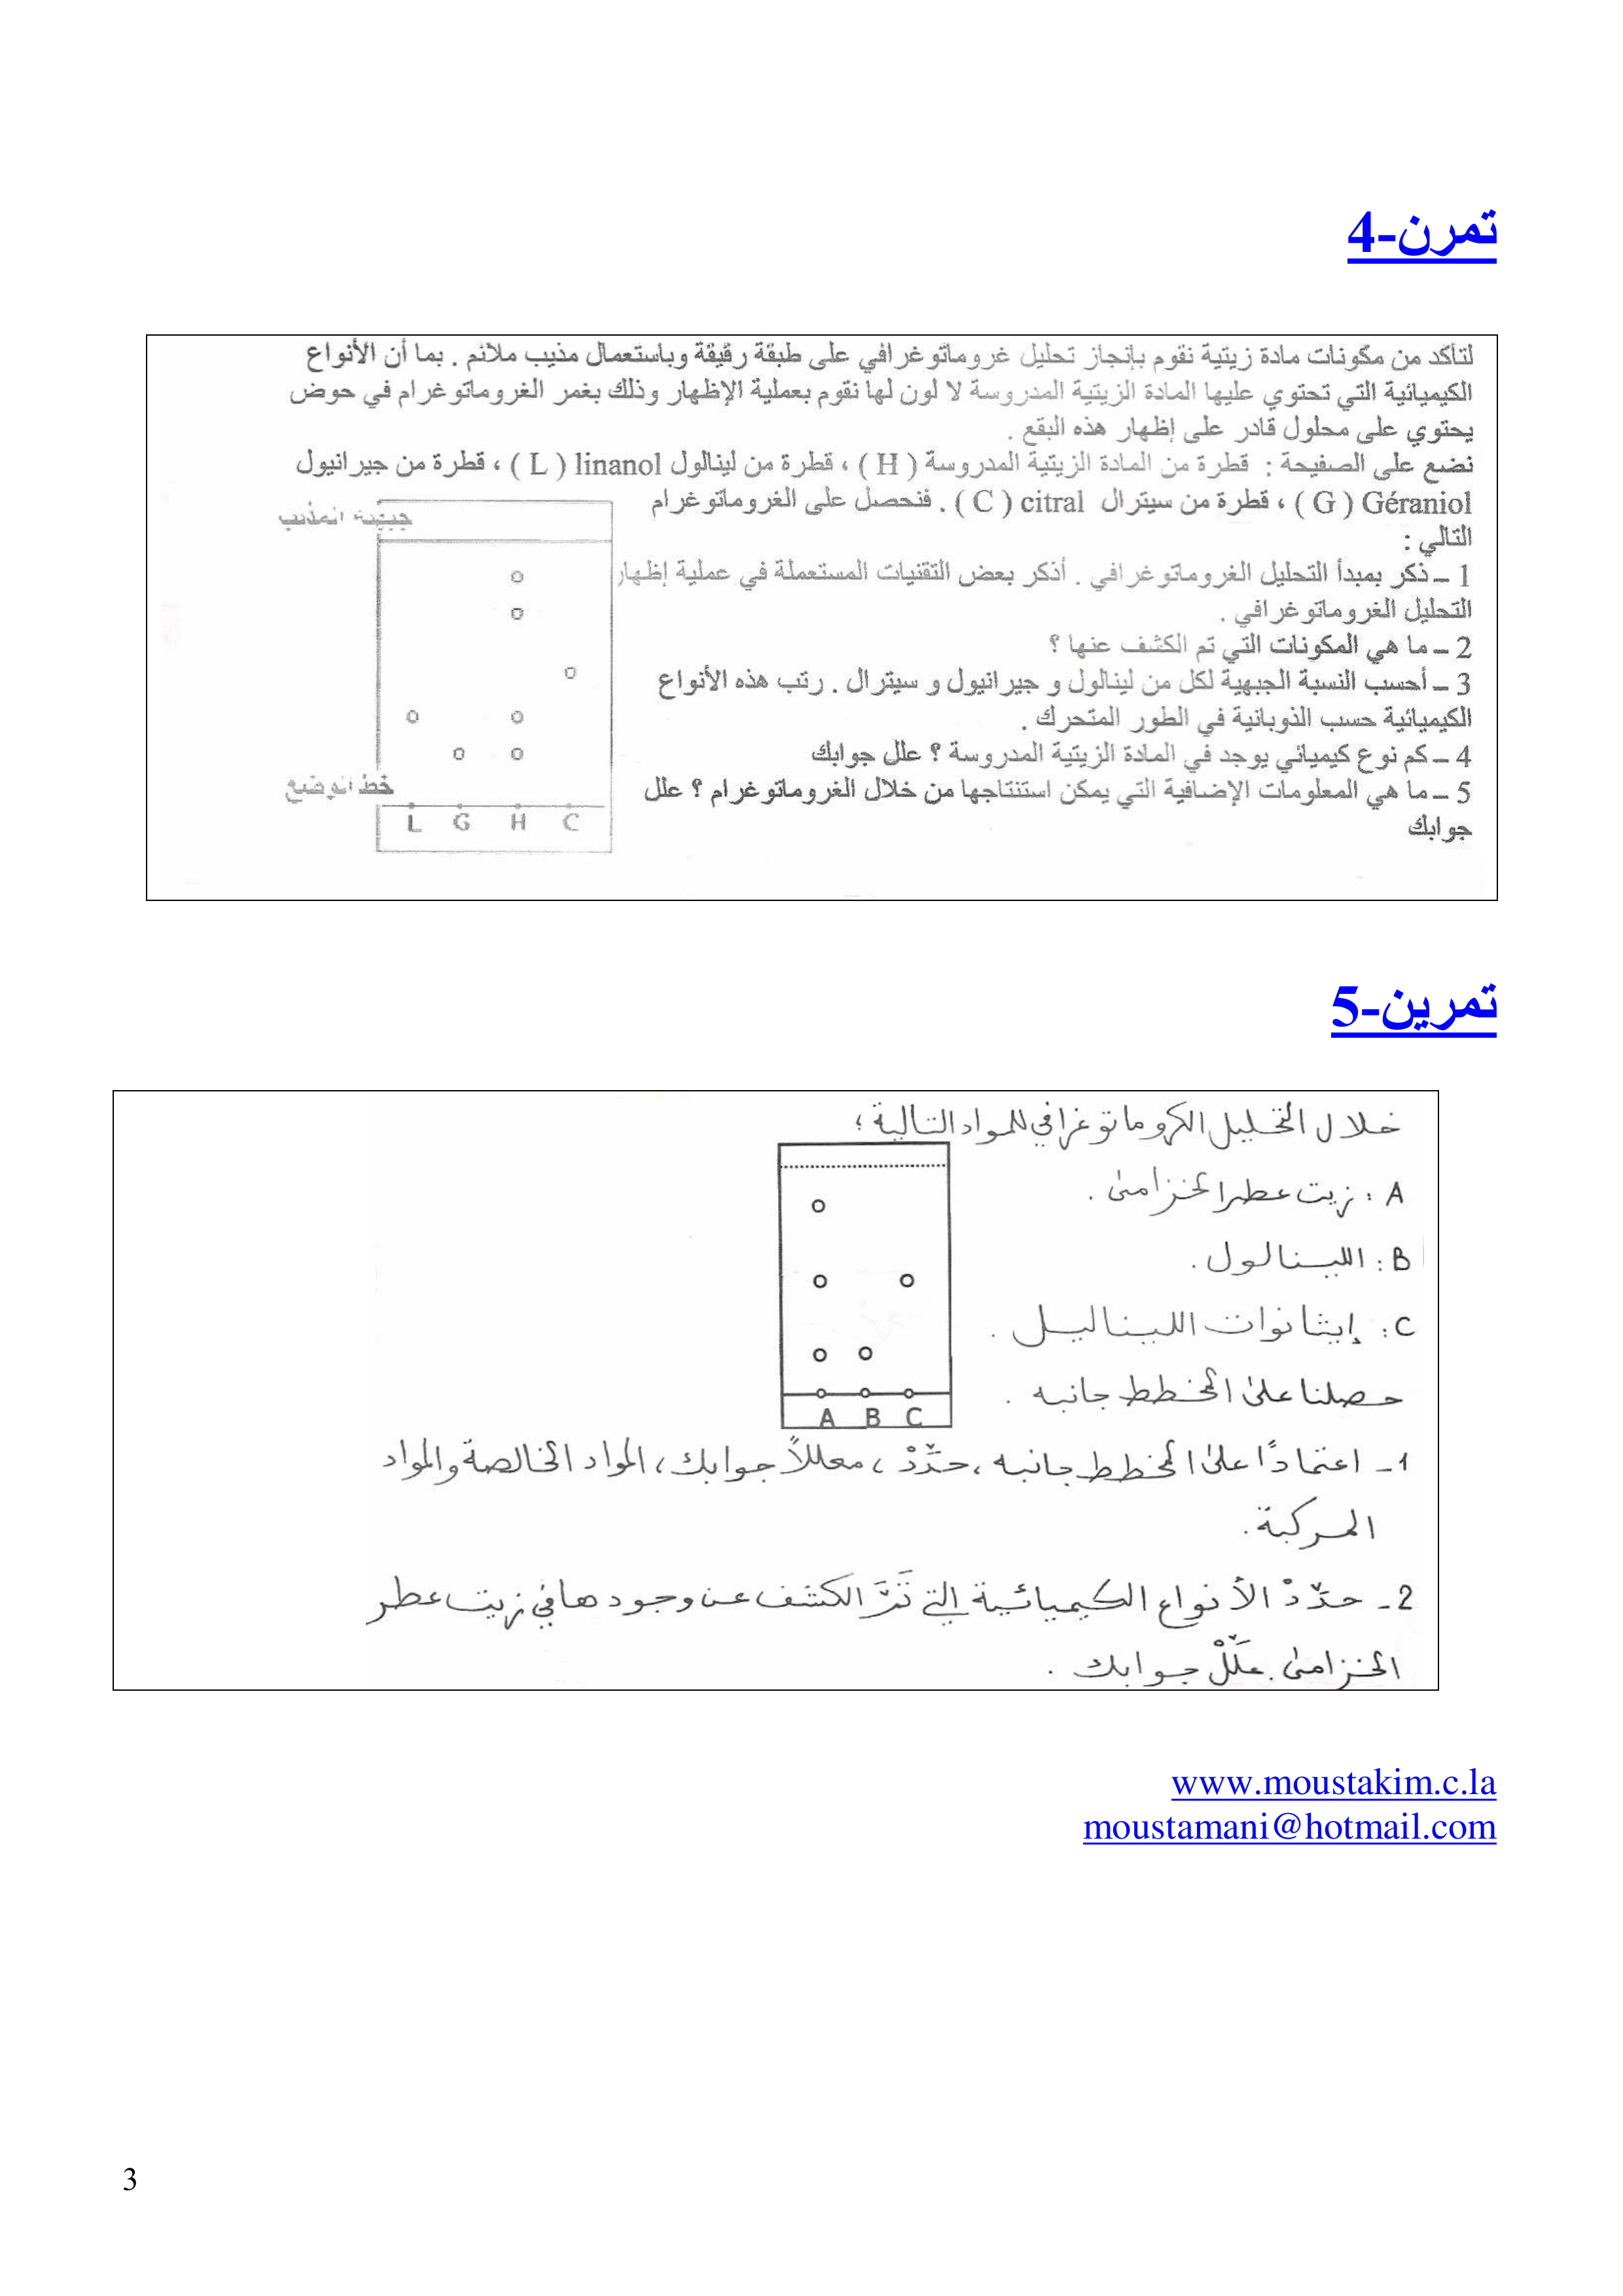 تمرن-4
لتأكد من مكونات مادة زيتية نقوم بإنجاز تحليل غروماتوغرافي على طبقة رقيقة وباستعمال مذيب ملائم . بما أن الأنواع
الكيميائية التي تحتوي عليها المادة الزيتية المدروسة لا لون لها نقوم بعملية الإظهار وذلك بغمر الغروماتوغرام في حوض
يحتوي على محلول قادر على إظهار هذه البقع .
نضع على الصفيحة : قطرة من المادة الزيتية المدروسة ( H ) ، قطرة من لينالول linanol ( L ) ، قطرة من جيرانيول
Géraniol ( G ) ، قطرة من سيترال citral ( C ) . فنحصل على الغروماتوغرام
التالي :
1 – ذكر بمبدأ التحليل الغروماتوغرافي . أذكر بعض التقنيات المستعملة في عملية إظهار
التحليل الغروماتوغرافي .
2 – ما هي المكونات التي تم الكشف عنها ؟
3 – أحسب النسبة الجبهية لكل من لينالول و جيرانيول و سيترال . رتب هذه الأنواع
الكيميائية حسب الذوبانية في الطور المتحرك .
4 – كم نوع كيميائي يوجد في المادة الزيتية المدروسة ؟ علل جوابك
5 – ما هي المعلومات الإضافية التي يمكن استنتاجها من خلال الغروماتوغرام ؟ علل
جوابك
جبهة المذيب
خط الوضع
L G H C
تمرين-5
خلال التحليل الكروماتوغرافي للمواد التالية :
A : زيت عطر الخزامى .
B : اللينالول .
C : إيثانوات الليناليل .
حصلنا على المخطط جانبه .
A B C
1- اعتمادًا على المخطط جانبه ، حدِّدْ ، معللاً جوابك ، المواد الخالصة والمواد
المركبة .
2- حدِّدْ الأنواع الكيميائية التي تَمَّ الكشف عن وجودها في زيت عطر
الخزامى . علِّلْ جوابك .
www.moustakim.c.la
moustamani@hotmail.com
3